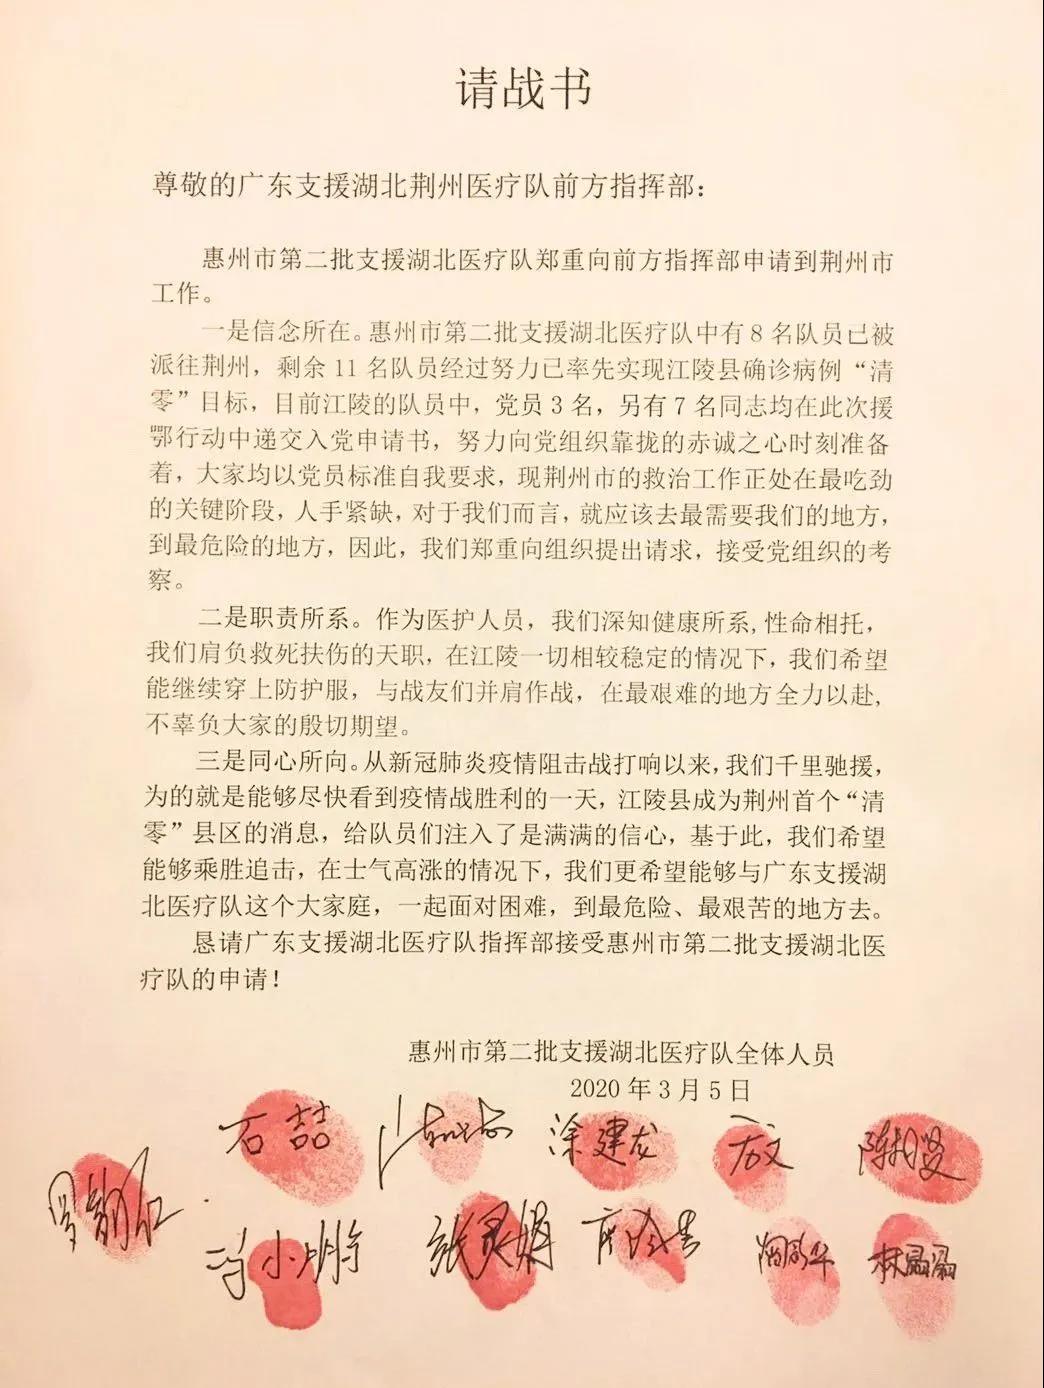 请战书
尊敬的广东支援湖北荆州医疗队前方指挥部：
惠州市第二批支援湖北医疗队郑重向前方指挥部申请到荆州市
工作。
一是信念所在。惠州市第二批支援湖北医疗队中有8名队员已被
派往荆州，剩余11名队员经过努力已率先实现江陵县确诊病例“清
零”目标，目前江陵的队员中，党员3名，另有7名同志均在此次援
鄂行动中递交入党申请书，努力向党组织靠拢的赤诚之心时刻准备
着，大家均以党员标准自我要求，现荆州市的救治工作正处在最吃劲
的关键阶段，人手紧缺，对于我们而言，就应该去最需要我们的地方，
到最危险的地方，因此，我们郑重向组织提出请求，接受党组织的考
察。
二是职责所系。作为医护人员，我们深知健康所系,性命相托，
我们肩负救死扶伤的天职，在江陵一切相较稳定的情况下，我们希望
能继续穿上防护服，与战友们并肩作战，在最艰难的地方全力以赴,
不辜负大家的殷切期望。
三是同心所向。从新冠肺炎疫情阻击战打响以来，我们千里驰援，
为的就是能够尽快看到疫情战胜利的一天，江陵县成为荆州首个“清
零”县区的消息，给队员们注入了是满满的信心，基于此，我们希望
能够乘胜追击，在士气高涨的情况下，我们更希望能够与广东支援湖
北医疗队这个大家庭，一起面对困难，到最危险、最艰苦的地方去。
恳请广东支援湖北医疗队指挥部接受惠州市第二批支援湖北医
疗队的申请！
惠州市第二批支援湖北医疗队全体人员
2020年3月5日
石喆
涂建龙
张灵娟